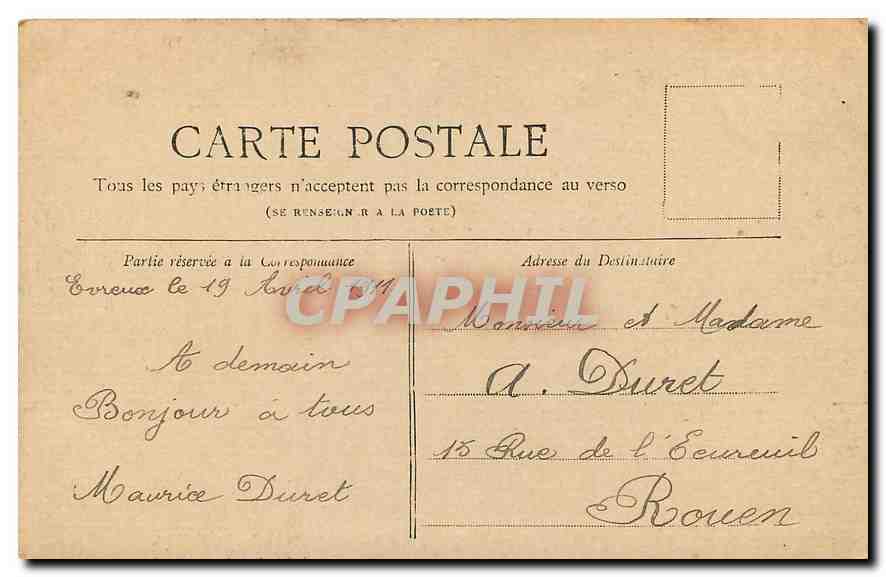 CARTE POSTALE
Tous les pays étrangers n'acceptent pas la correspondance au verso
(SE RENSEIGNER A LA POSTE)
Partie réservée a la Correspondance
Adresse du Destinataire
Evreux le 19 Avril 1911
A demain
Bonjour à tous
Maurice Duret
Monsieur et Madame
A. Duret
15 Rue de l'Ecureuil
Rouen
CPAPHIL